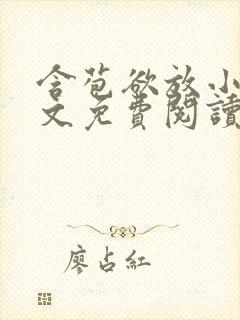 含苞欲放小
文免費閱讀
廖占紅